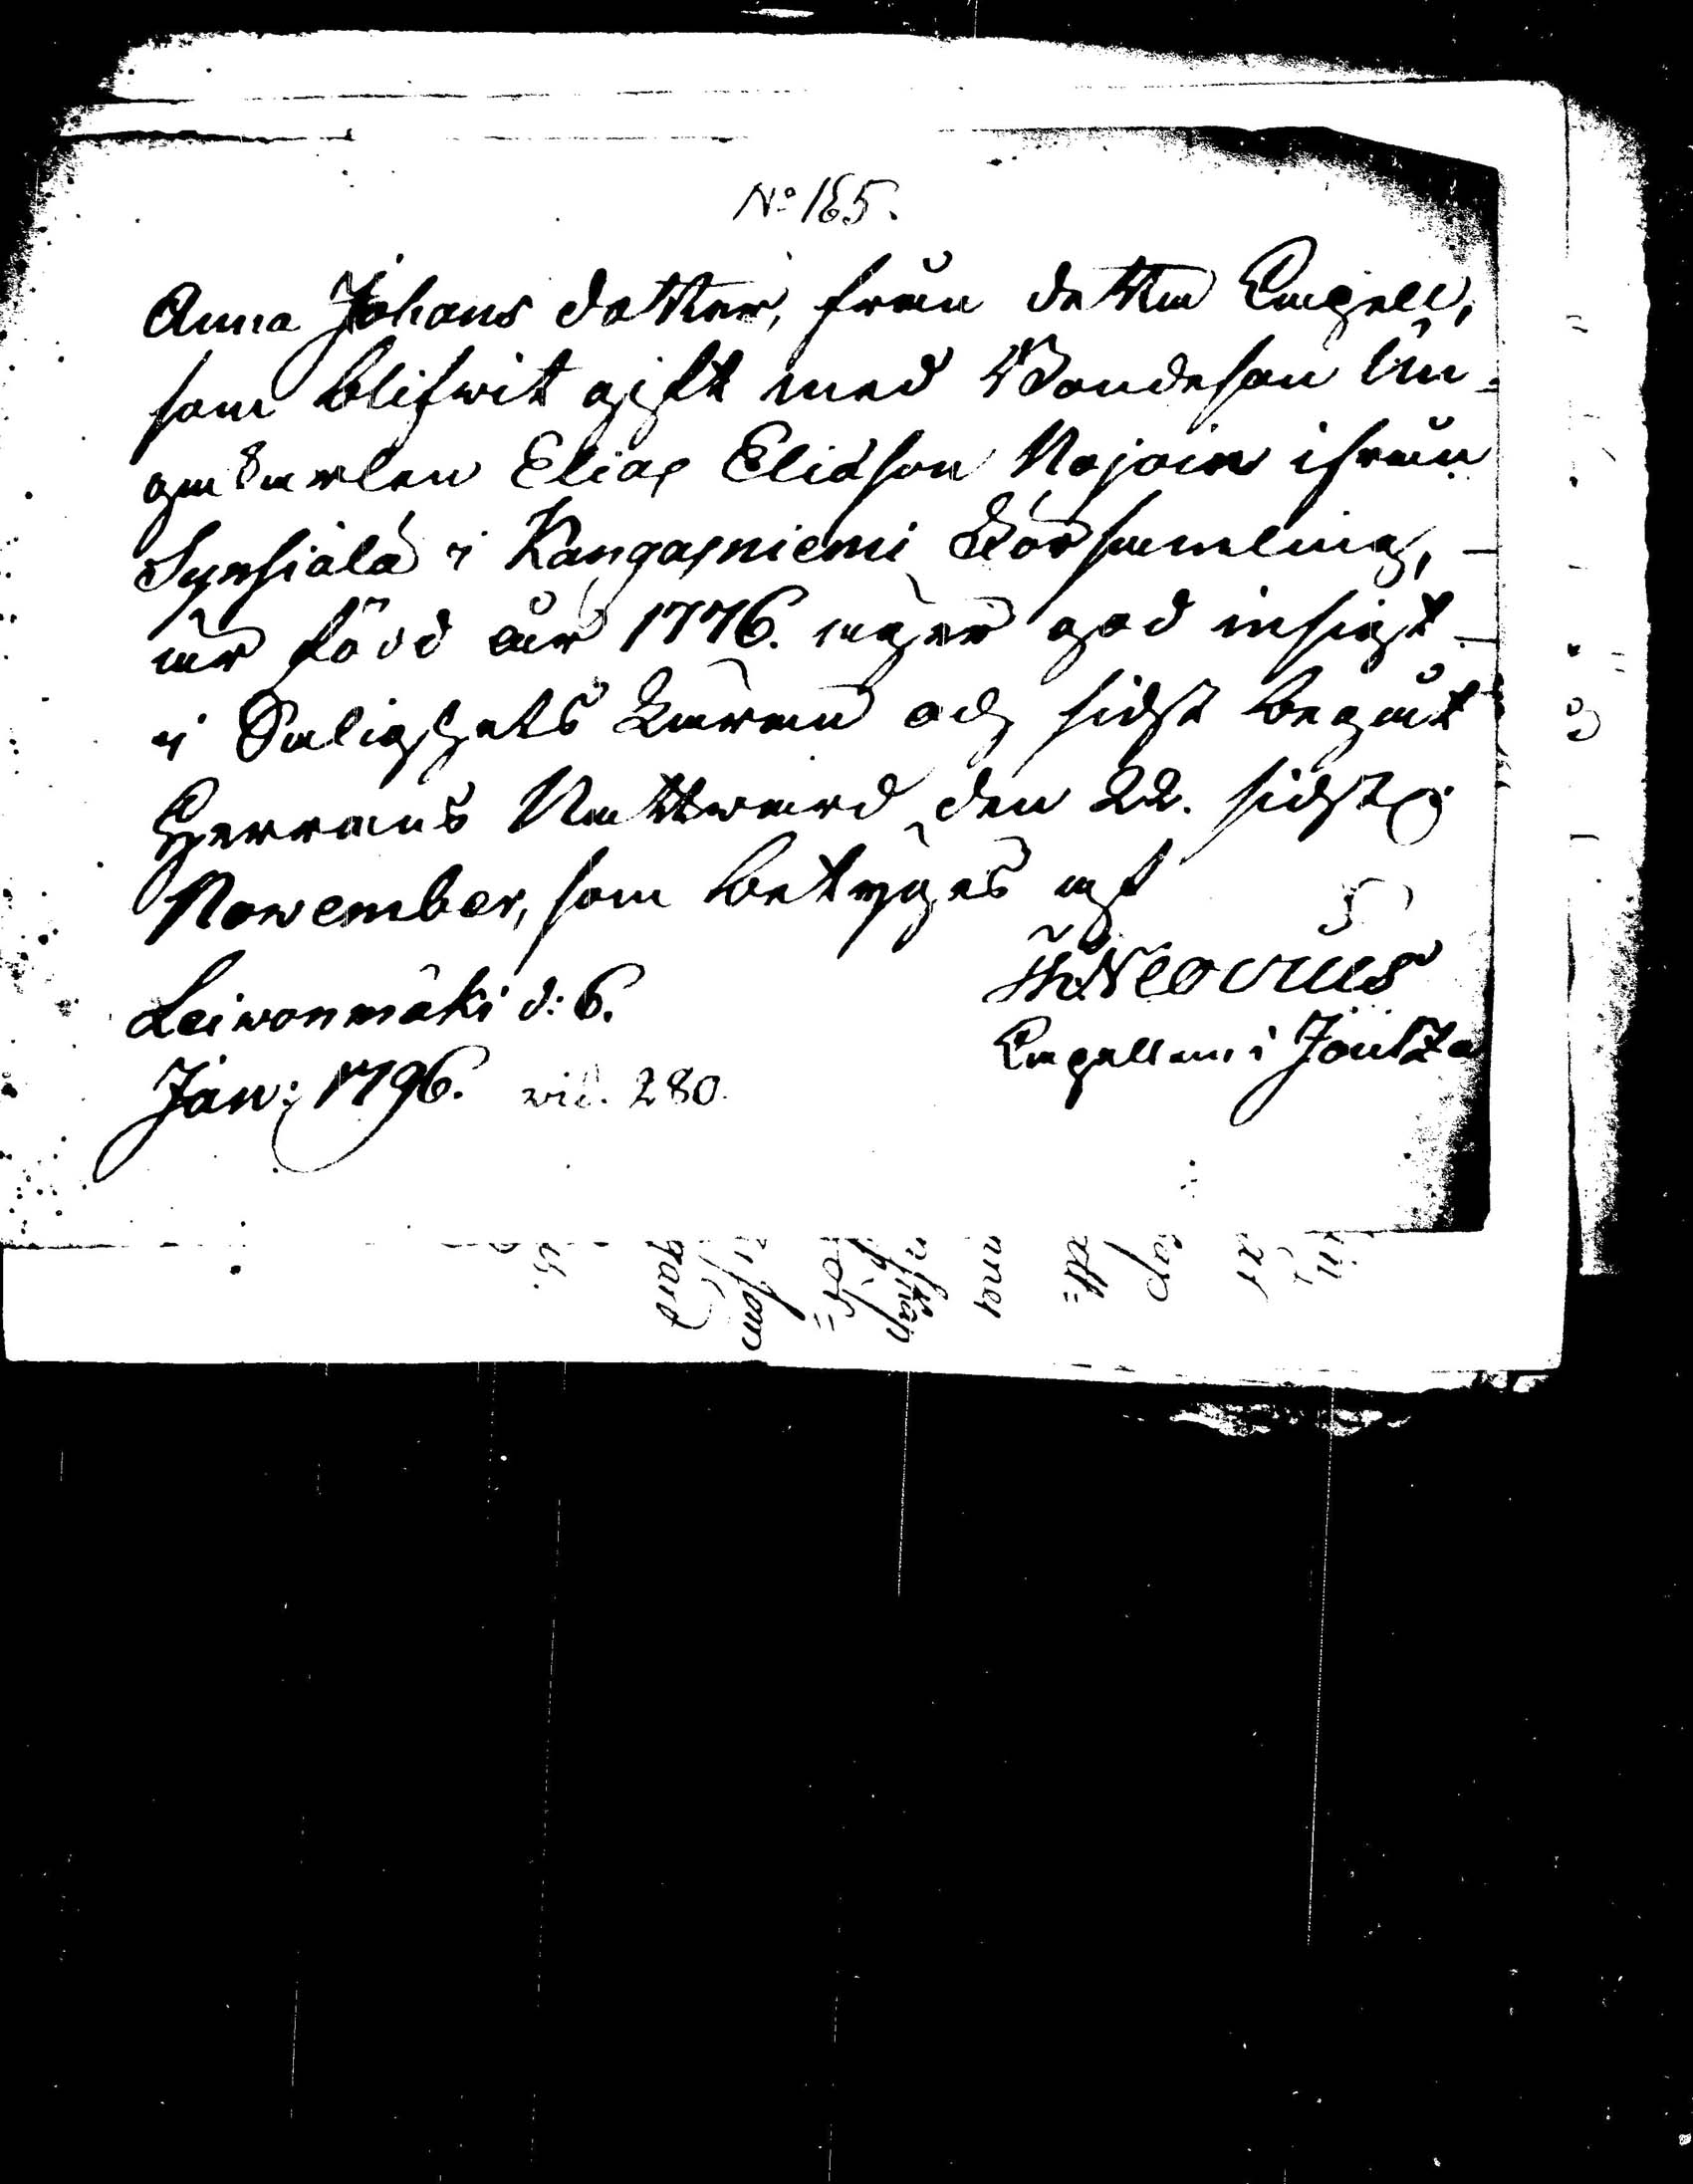 No 165.
Anna Johans dotter, från detta Capell,
som blifwit gift med Bondeson Un-
gakarlen Elias Eliasson Nojoin ifrån
Synsiälä i Kangasniemi Församling,
är född år 1776. äger god insigt
i Salighets Läran och sidst begåt
Herrans Nattward den 22. sidstl:
November, som betyges af
Leiwonmäki d: 6.
Jan: 1796. vid. 280.
Neovius
Capellan i Joutza
gård
som